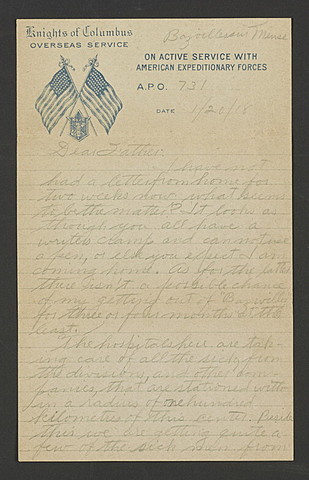 Knights of Columbus
OVERSEAS SERVICE
ON ACTIVE SERVICE WITH
AMERICAN EXPEDITIONARY FORCES
A.P.O. 731
DATE 1/20/18
Dear Father:
I have not
had a letter from home for
two weeks now what seems
to be the matter? It looks as
though you all have a
cramp and cannot use
a pen, or else you expect I am
coming home. As for the latter
there isn't a possible chance
of my getting out of
for three or four months at the
least.
The hospitals here are tak-
ing care of all the sick from
the divisions, and other com-
panies, that are stationed with-
in a radius of one hundred
kilometers of this center. Beside
this we are getting quite a
few of the sick men from